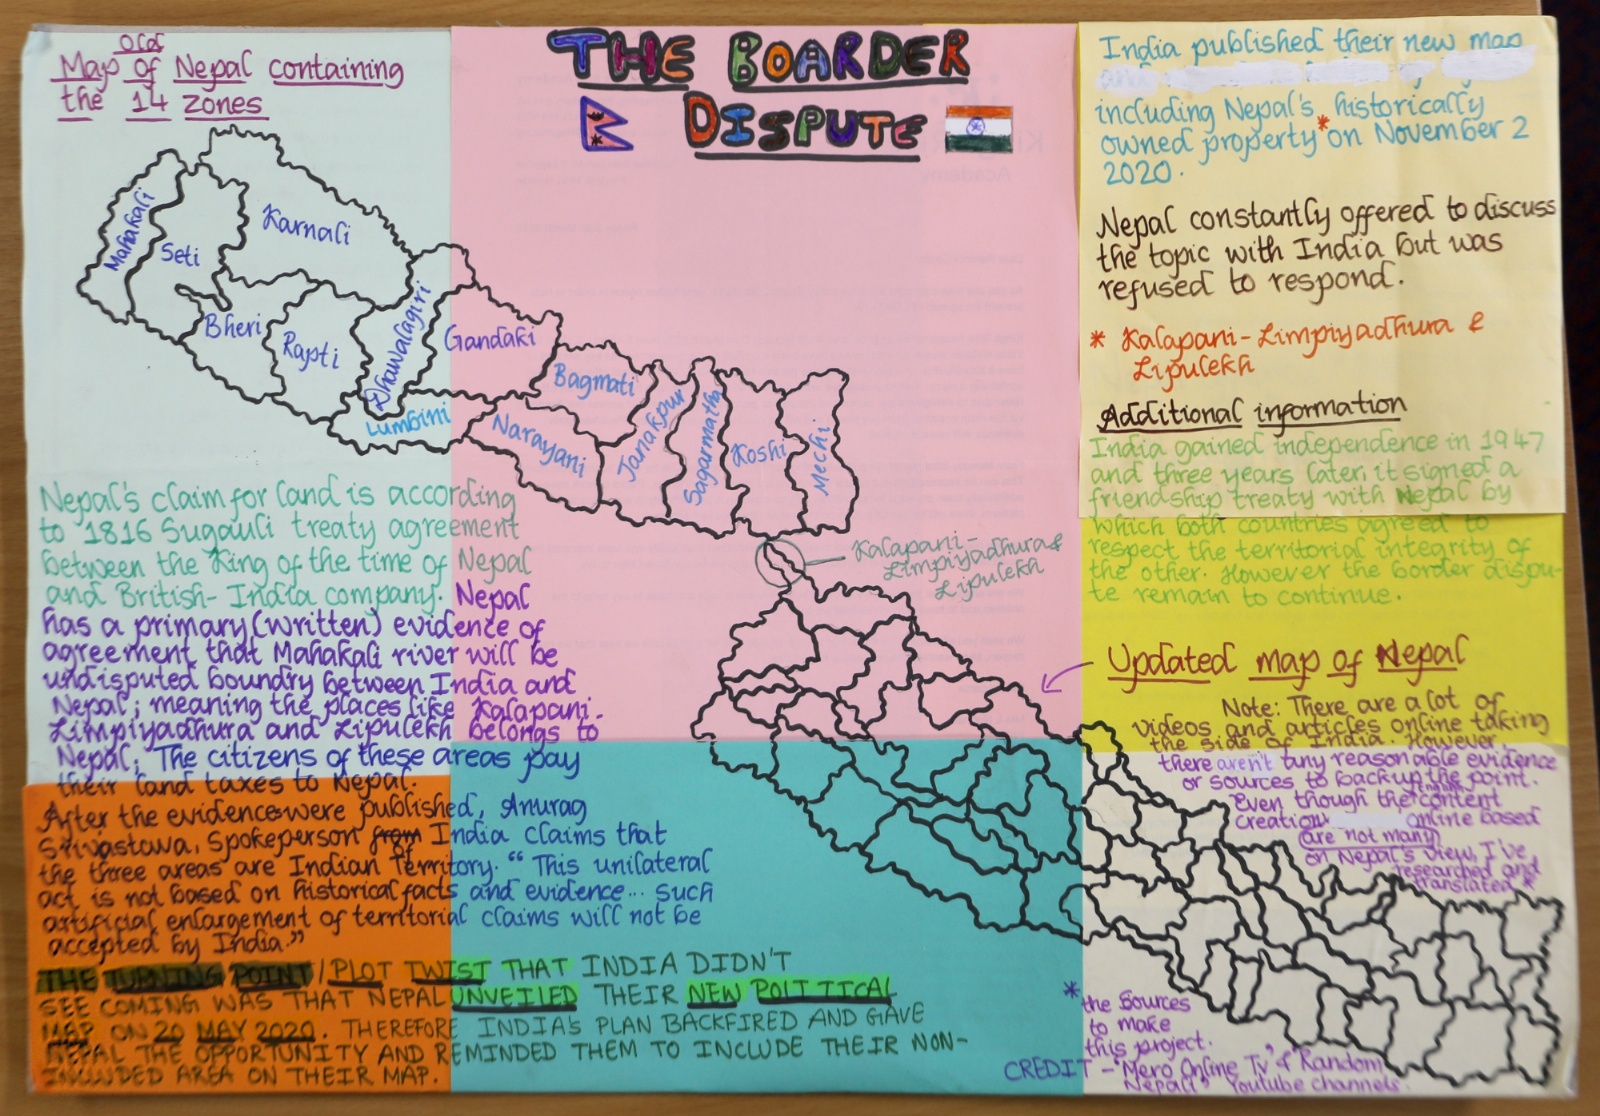 THE BOARDER
DISPUTE
Map of Nepal containing
old
the 14 zones
Mahakali
Seti
Karnali
Bheri
Rapti
Dhawalagiri
Gandaki
Lumbini
Bagmati
Narayani
Janakpur
Sagarmatha
Koshi
Mechi
Nepal's claim for land is according
to 1816 Sugauli treaty agreement
between the King of the time of Nepal
and British-India company. Nepal
has a primary (written) evidence of
agreement that Mahakali river will be
undisputed boundry between India and
Nepal; meaning the places like Kalapani-
Limpiyadhura and Lipulekh belongs to
Nepal. The citizens of these areas pay
their land taxes to Nepal.
After the evidence were published, Anurag
Srivastawa, Spokeperson from India claims that
the three areas are Indian Territory. "This unilateral
act is not based on historical facts and evidence... such
artificial enlargement of territorial claims will not be
accepted by India."
THE TURNING POINT / PLOT TWIST THAT INDIA DIDN'T
SEE COMING WAS THAT NEPAL UNVEILED THEIR NEW POLITICAL
MAP ON 20 MAY 2020. THEREFORE INDIA'S PLAN BACKFIRED AND GAVE
NEPAL THE OPPORTUNITY AND REMINDED THEM TO INCLUDE THEIR NON-
INCLUDED AREA ON THEIR MAP.
Kalapani-
Limpiyadhura &
Lipulekh
India published their new map
including Nepal's * historically
owned property on November 2
2020.
Nepal constantly offered to discuss
the topic with India but was
refused to respond.
* Kalapani-Limpiyadhura &
Lipulekh
Additional information
India gained independence in 1947
and three years later, it signed a
friendship treaty with Nepal by
which both countries agreed to
respect the territorial integrity of
the other. However the border dispu-
te remain to continue.
Updated map of Nepal
Note: There are a lot of
videos and articles online taking
the side of India. However,
there aren't any reasonable evidence
or sources to backup the point.
Even though the English content
creation online based
are not many
on Nepal's view, I've
researched and
translated *
* the sources
to make
this project.
CREDIT - "Mero Online Tv" & "Random
Nepali" Youtube channels.